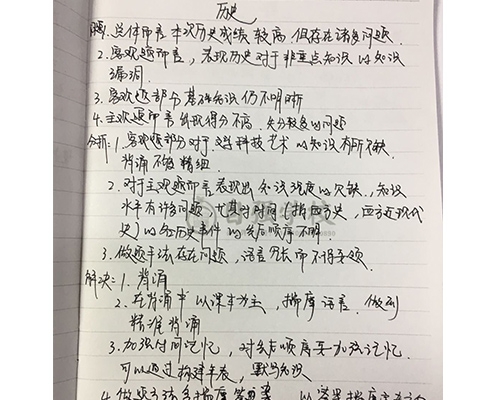 历史
问题: 1. 总体而言本次历史成绩较高但存在诸多问题.
2. 客观题而言,表现历史对于非重点知识的知识
漏洞.
3. 客观题部分基础知识仍不明晰
4. 主观题而言出现得分不高.失分较多的问题
分析: 1. 客观题部分对于文科技艺术的知识有所欠缺.
背诵不够精细.
2. 对于主观题而言表现出知识视度的欠缺,知识
水平有许多问题.尤其对时间(指西历史,西方近现代
史)的的历史事件的先后顺序不明.
3. 做题手法存在问题,语言冗长而不得要领.
解决: 1. 背诵
2. 在背诵中以课本为主,揣摩语言.做到
精准背诵
3. 加强时间记忆,对先后顺序要加强记忆.
可以通过构建年表,默写知识
4. 做题方法多揣摩答案